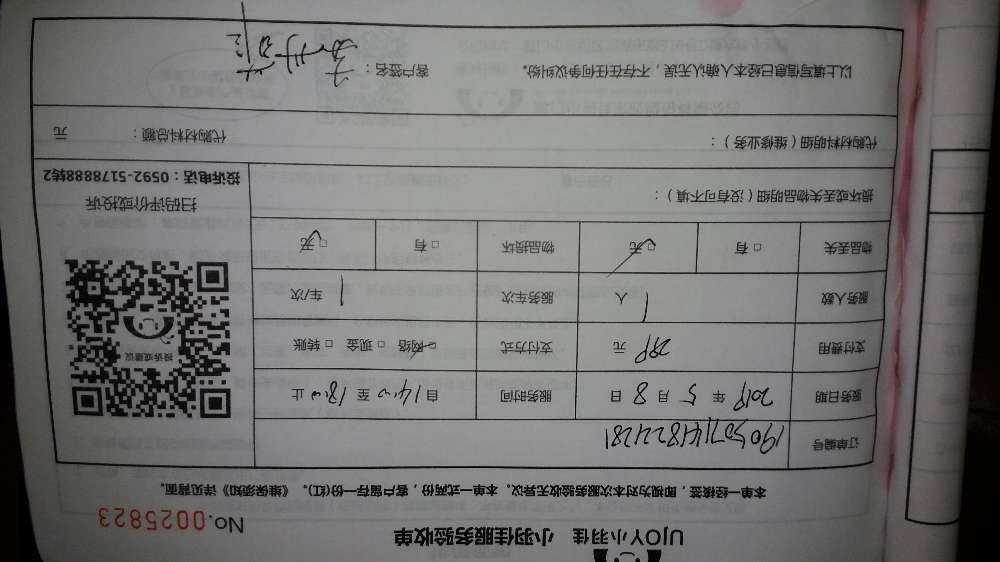 UJOY小羽佳 小羽佳服务验收单
No.0025823
本单一经接签，即视为对本次服务验收无异议。本单一式两份，客户留存一份(红)。《维保须知》详见背面。
订单编号 1905071448224281
服务日期 2019 年 5 月 8 日 服务时间 自 14:00 至 18:00 止
支付费用 299 元 支付方式 网络 □ 现金 □ 转账
服务人数 1 人 服务车次 1 车/次
物品丢失 □ 有 □ 无 物品损坏 □ 有 □ 无
投诉或建议
扫码评价或投诉
投诉电话：0592-5178888转2
损坏或丢失物品明细（没有可不填）：
代购材料明细（维修业务）：
代购材料总额： 元
以上填写信息已经本人确认无误，不存在任何争议纠纷。 客户签名：